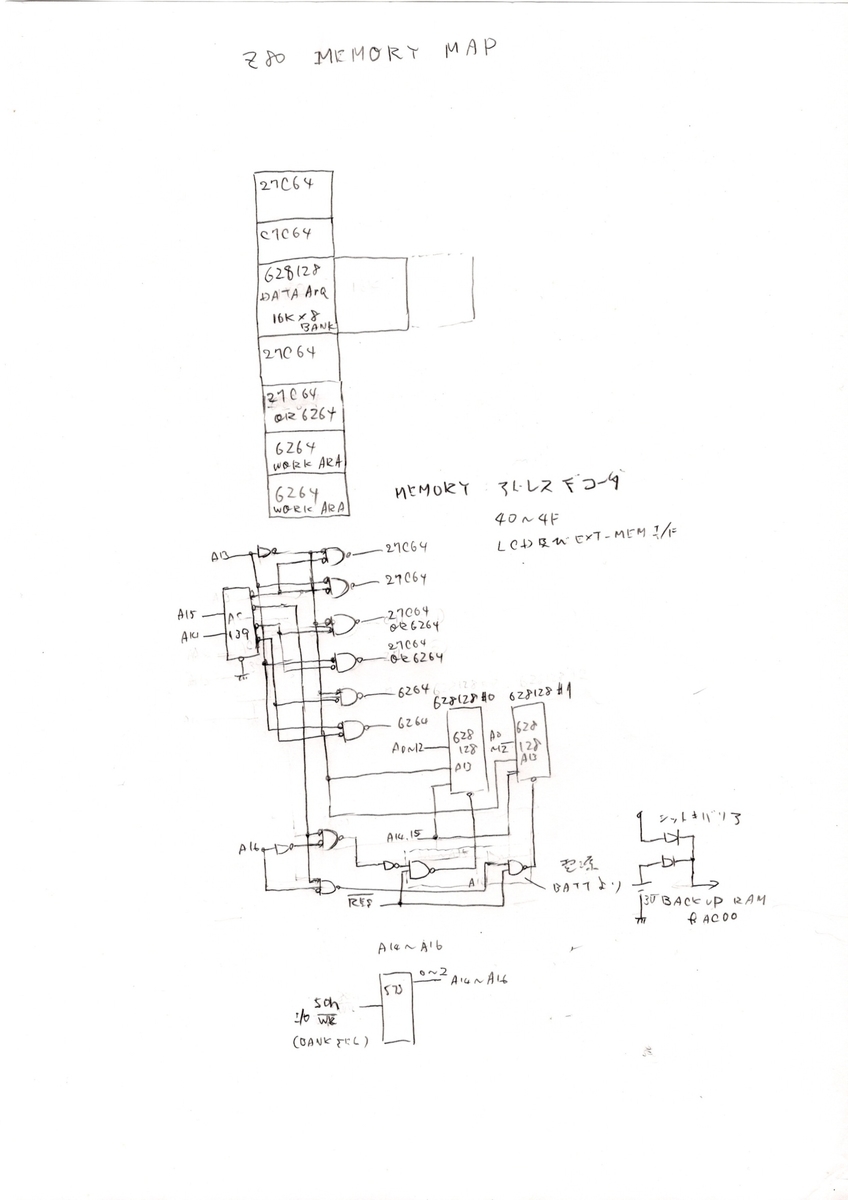 Z80 MEMORY MAP
27C64
C7C64
628128
DATA Ara
16K×8
BANK
27C64
27C64
OR 6264
6264
WORK ARA
6264
WORK ARA
MEMORY アドレスデコーダ
40～4F
LCD及び EXT-MEM I/F
A13
27C64
27C64
A15
A14
AC
139
27C64
OR 6264
27C64
OR 6264
6264
6264
628128#0
628128#1
A0～12
628
128
A13
A0
～12
628
128
A13
A14.15
A16
RES
電源
BATTより
ショットキバリア
3V
BACKUP RAM
& AC00
A14～A16
573
0～2
A14～A16
I/O 50h
WR
(BANK セレ)